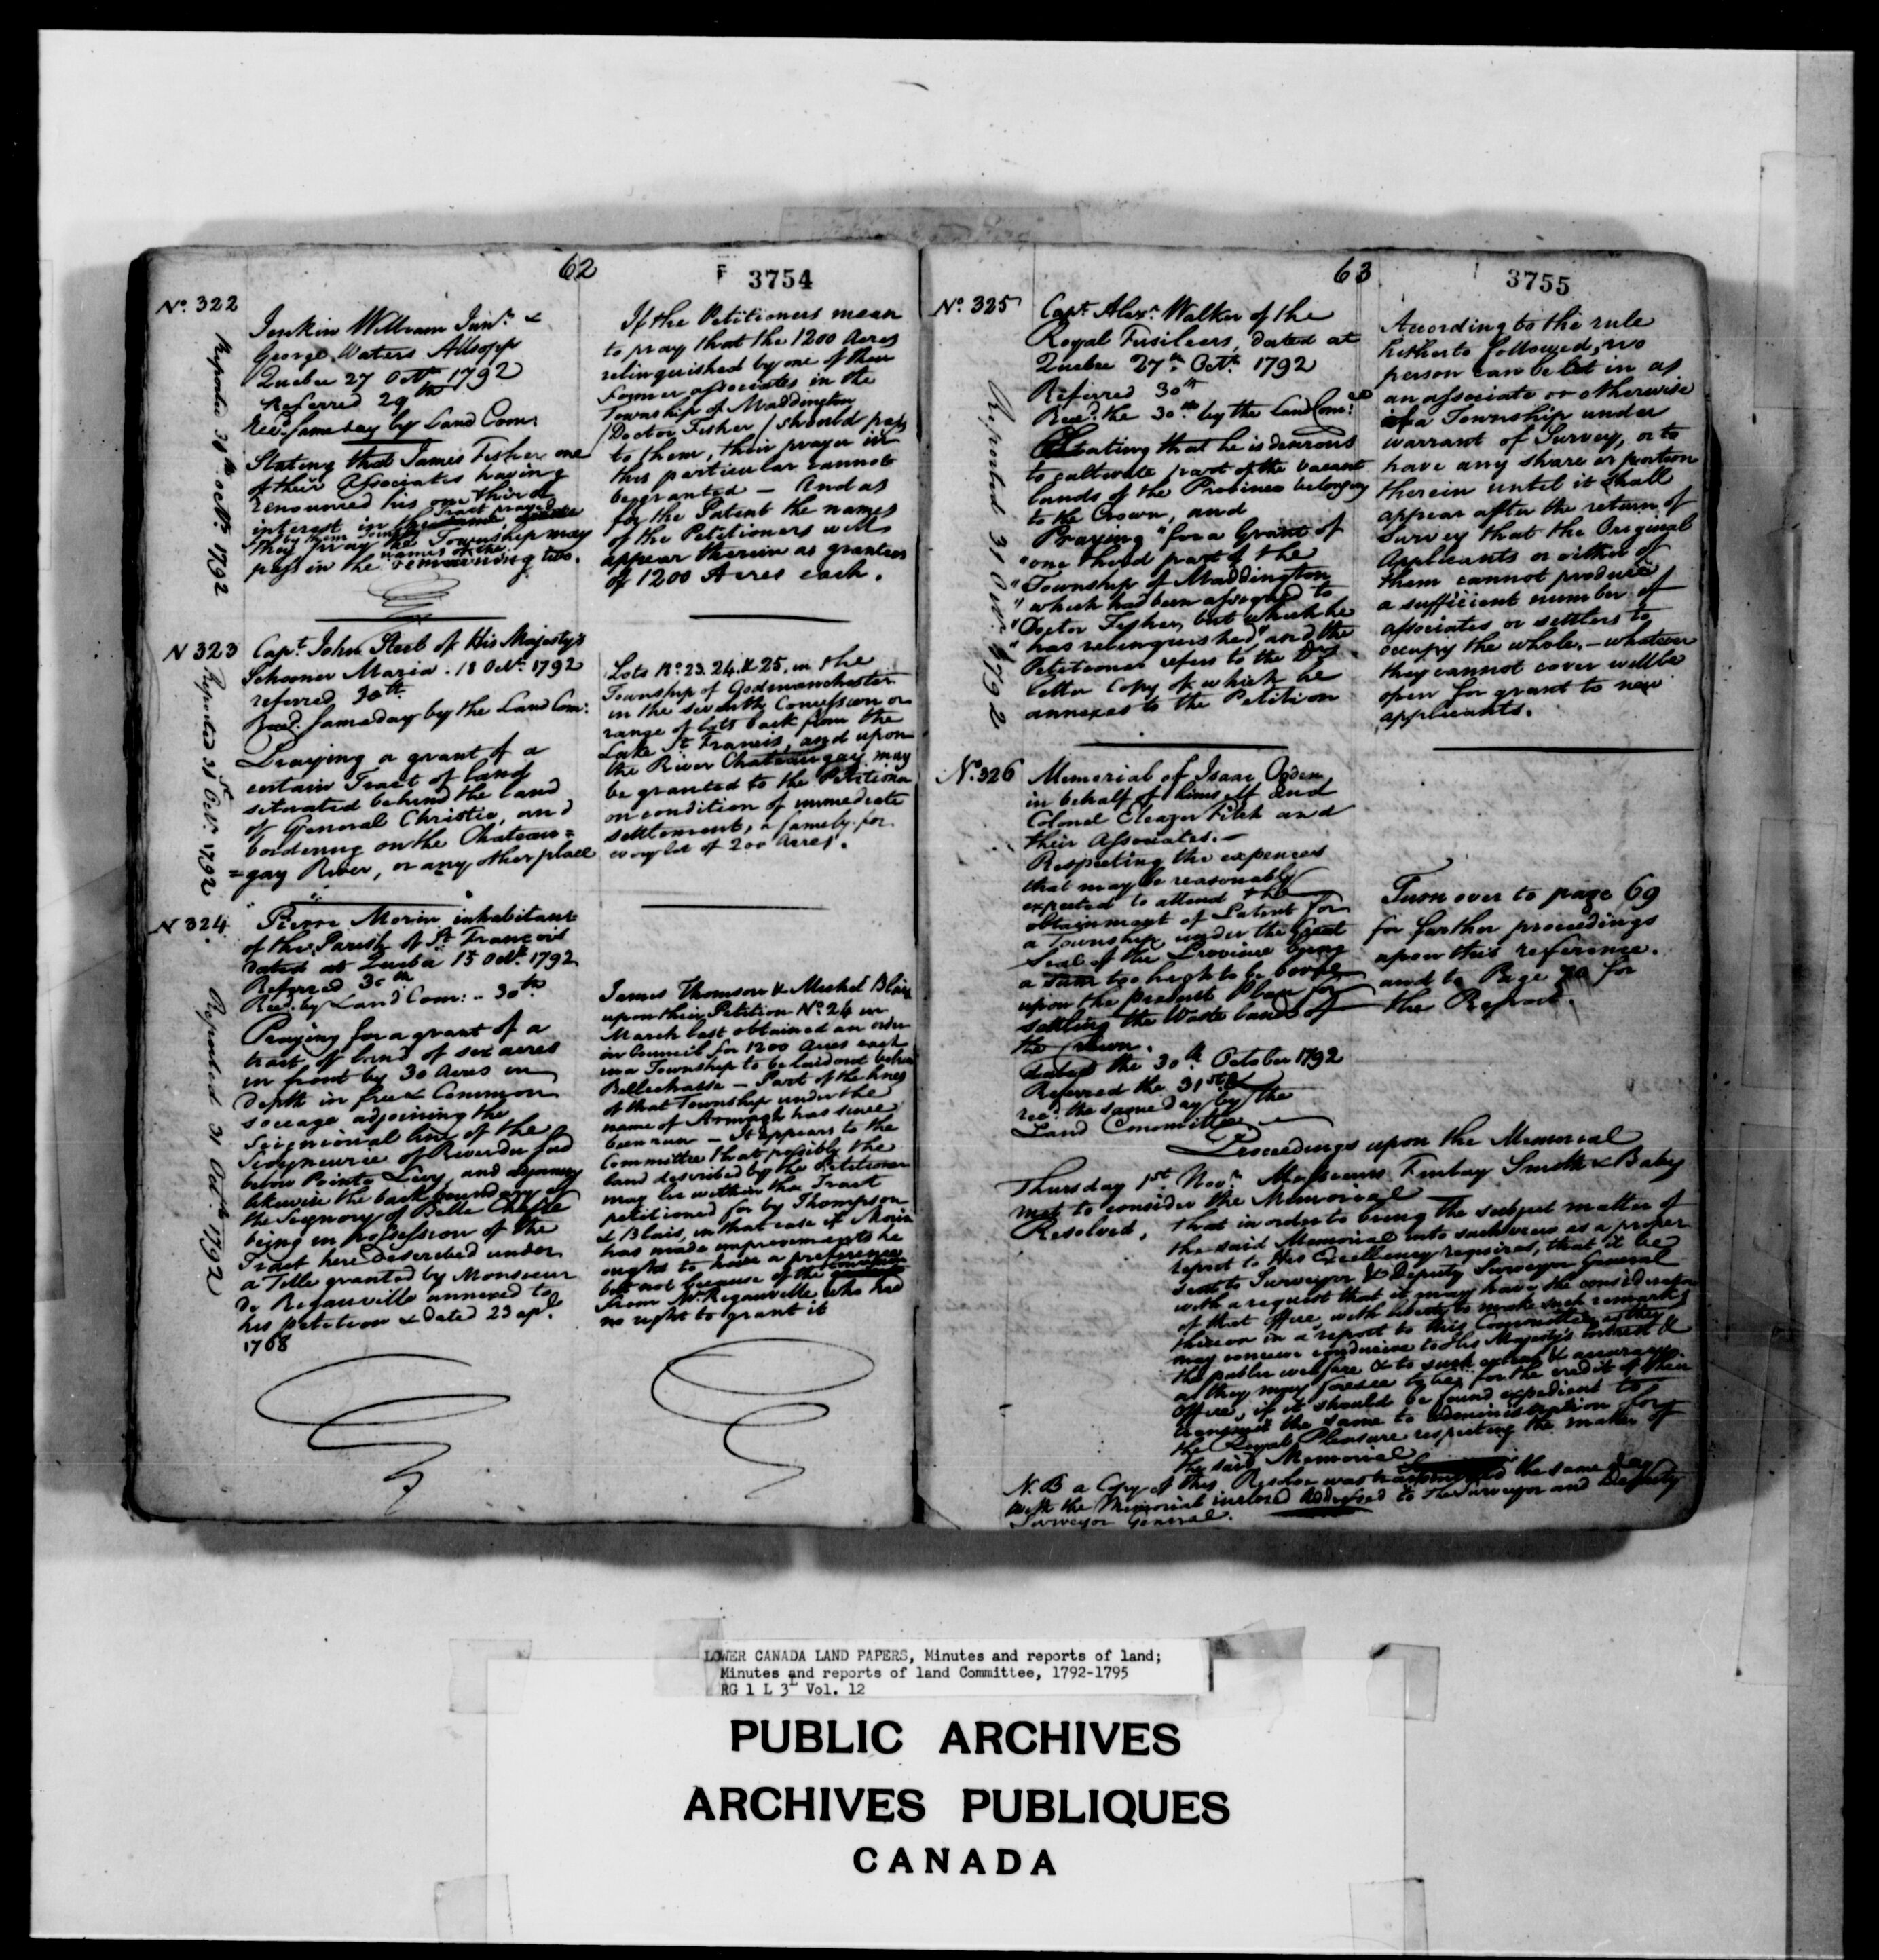 62
3754
No. 322
Reported 30th Octr. 1792
Jenkin William Junr. &
George Waters Allsopp
Quebec 27 Octr. 1792
Referred 29th
Recd. same day by Land Com:
Stating that James Fisher one
of their Associates having
renounced his one third
interest in the Tract prayed
for by them
they pray the Township may
pass in the names of the remaining two.
If the Petitioners mean
to pray that the 1200 Acres
relinquished by one of their
Former associates in the
Township of Maddington
/Doctor Fisher/ should pass
to them, their prayer in
this particular cannot
be granted — And as
for the Patent the names
of the Petitioners will
appear therein as grantees
of 1200 Acres each.
N 323
Reported 31st Octr. 1792
Capt. John Steel of His Majesty's
Schooner Maria. 18 Octr. 1792
referred 30th
Recd. same day by the Land Com:
Praying a grant of a
certain Tract of land
situated behind the land
of General Christie, and
bordering on the Chateau=
=gay River, or any other place
Lots No. 23. 24. & 25, in the
Township of Godmanchester
in the seventh Concession or
range of lots back from the
Lake St Francis, and upon
the River Chateaugay, may
be granted to the Petitioner
on condition of immediate
settlement, a family for
every lot of 200 Acres.
N 324.
Reported 31 Octr. 1792
Pierre Morin inhabitant
of the Parish of St François
dated at Quebec 15 Octr. 1792
Referred 30th
Recd. by Land Com: - 30th
Praying for a grant of a
tract of land of six acres
in front by 30 Acres in
depth in free & Common
soccage adjoining the
Seigniorial line of the
Seigneurie of Riviere du Sud
below Pointe Levy, and
likewise the back boundary of
the Seignory of Belle Chasse
being in possession of the
Tract here described under
a Title granted by Monsieur
De Rigauville annexed to
his petition & dated 23 apl.
1768
James Thomson & Michel Blais
upon their Petition No. 24 in
March last obtained an order
in Council for 1200 Acres each
in a Township to be laid out behind
Bellechasse — Part of the lines
of that Township under the
name of Armagh has since
been run — It appears to the
Committee that possibly the
land described by the Petitioner
may lie within the Tract
petitioned for by Thompson
& Blais, in that case if Morin
has made improvements he
ought to have a preference
but not because of the
from Mr. Rigauville who had
no right to grant it
63
3755
No. 325
Reported 31 Octr. 1792
Capt. Alexr. Walker of the
Royal Fusileers, dated at
Quebec 27th Octr. 1792
Referred 30th
Recd. the 30th by the Land Come:
Stating that he is desirous
to cultivate part of the vacant
lands of the Province belonging
to the Crown, and
Praying "for a Grant of
"one third part of the
"Township of Maddington
"which had been assigned to
"Doctor Fisher, but which he
"has relinquished" and the
Petitioner refers to the Drs
letter Copy of which he
annexes to the Petition
According to the rule
hitherto followed, no
person can be let in as
an associate or otherwise
of a Township under
warrant of Survey, or to
have any share or portion
therein until it shall
appear after the return of
Survey that the Original
Applicants or either of
them cannot produce
a sufficient number of
associates or settlers to
occupy the whole. — whatever
they cannot cover will be
open for grant to new
applicants.
No. 326
Memorial of Isaac Ogden,
in behalf of himself and
Colonel Eleazer Fitch and
their Associates. —
Respecting the expences
that may be reasonably
expected to attend the
obtainment of Patent for
a Township under the Great
Seal of the Province being
a sum too high to be borne
upon the present Plan for
settling the Waste lands of
the Crown.
Dated the 30th October 1792
Referred the 31st &
recd. the same day by the
Land Committee
Turn over to page 69
for farther proceedings
upon this reference.
and to Page 70 for
the Report.
Proceedings upon the Memorial
Thursday 1st Novr. Messieurs Finlay Smith & Baby
met to consider the Memorial
Resolved, that in order to bring the subject matter of
the said Memorial into such view as a proper
report to His Excellency requires, that it be
sent to Surveyor & Deputy Surveyor General
with a request that it may have the consideration
of that Office, with liberty to make such remarks
thereon in a report to this Committee as they
may conceive conducive to His Majesty's Interest &
the public welfare & to such extent & accuracy
as they may foresee to be for the credit of their
Office, if it should be found expedient to
transmit the same to administration for
the Royal Pleasure respecting the matter of
the said Memorial
N.B a Copy of this Resolve was transmitted the same day
with the Memorial inclosed Addressed to The Surveyor and Deputy
Surveyor General.
LOWER CANADA LAND PAPERS, Minutes and reports of land;
Minutes and reports of land Committee, 1792-1795
RG 1 L 3L Vol. 12
PUBLIC ARCHIVES
ARCHIVES PUBLIQUES
CANADA